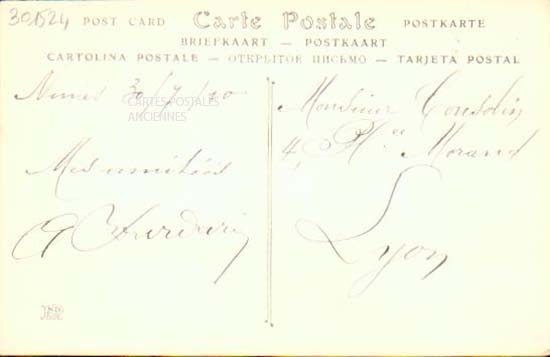 301524
POST CARD Carte Postale POSTKARTE
BRIEFKAART — POSTKAART
CARTOLINA POSTALE — ОТКРЫТОЕ ПИСЬМО — TARJETA POSTAL
Nimes 30/7/10
CARTES-POSTALES
ANCIENNES
Mes amitiés
Monsieur
4, Pl.ce Morand
Lyon